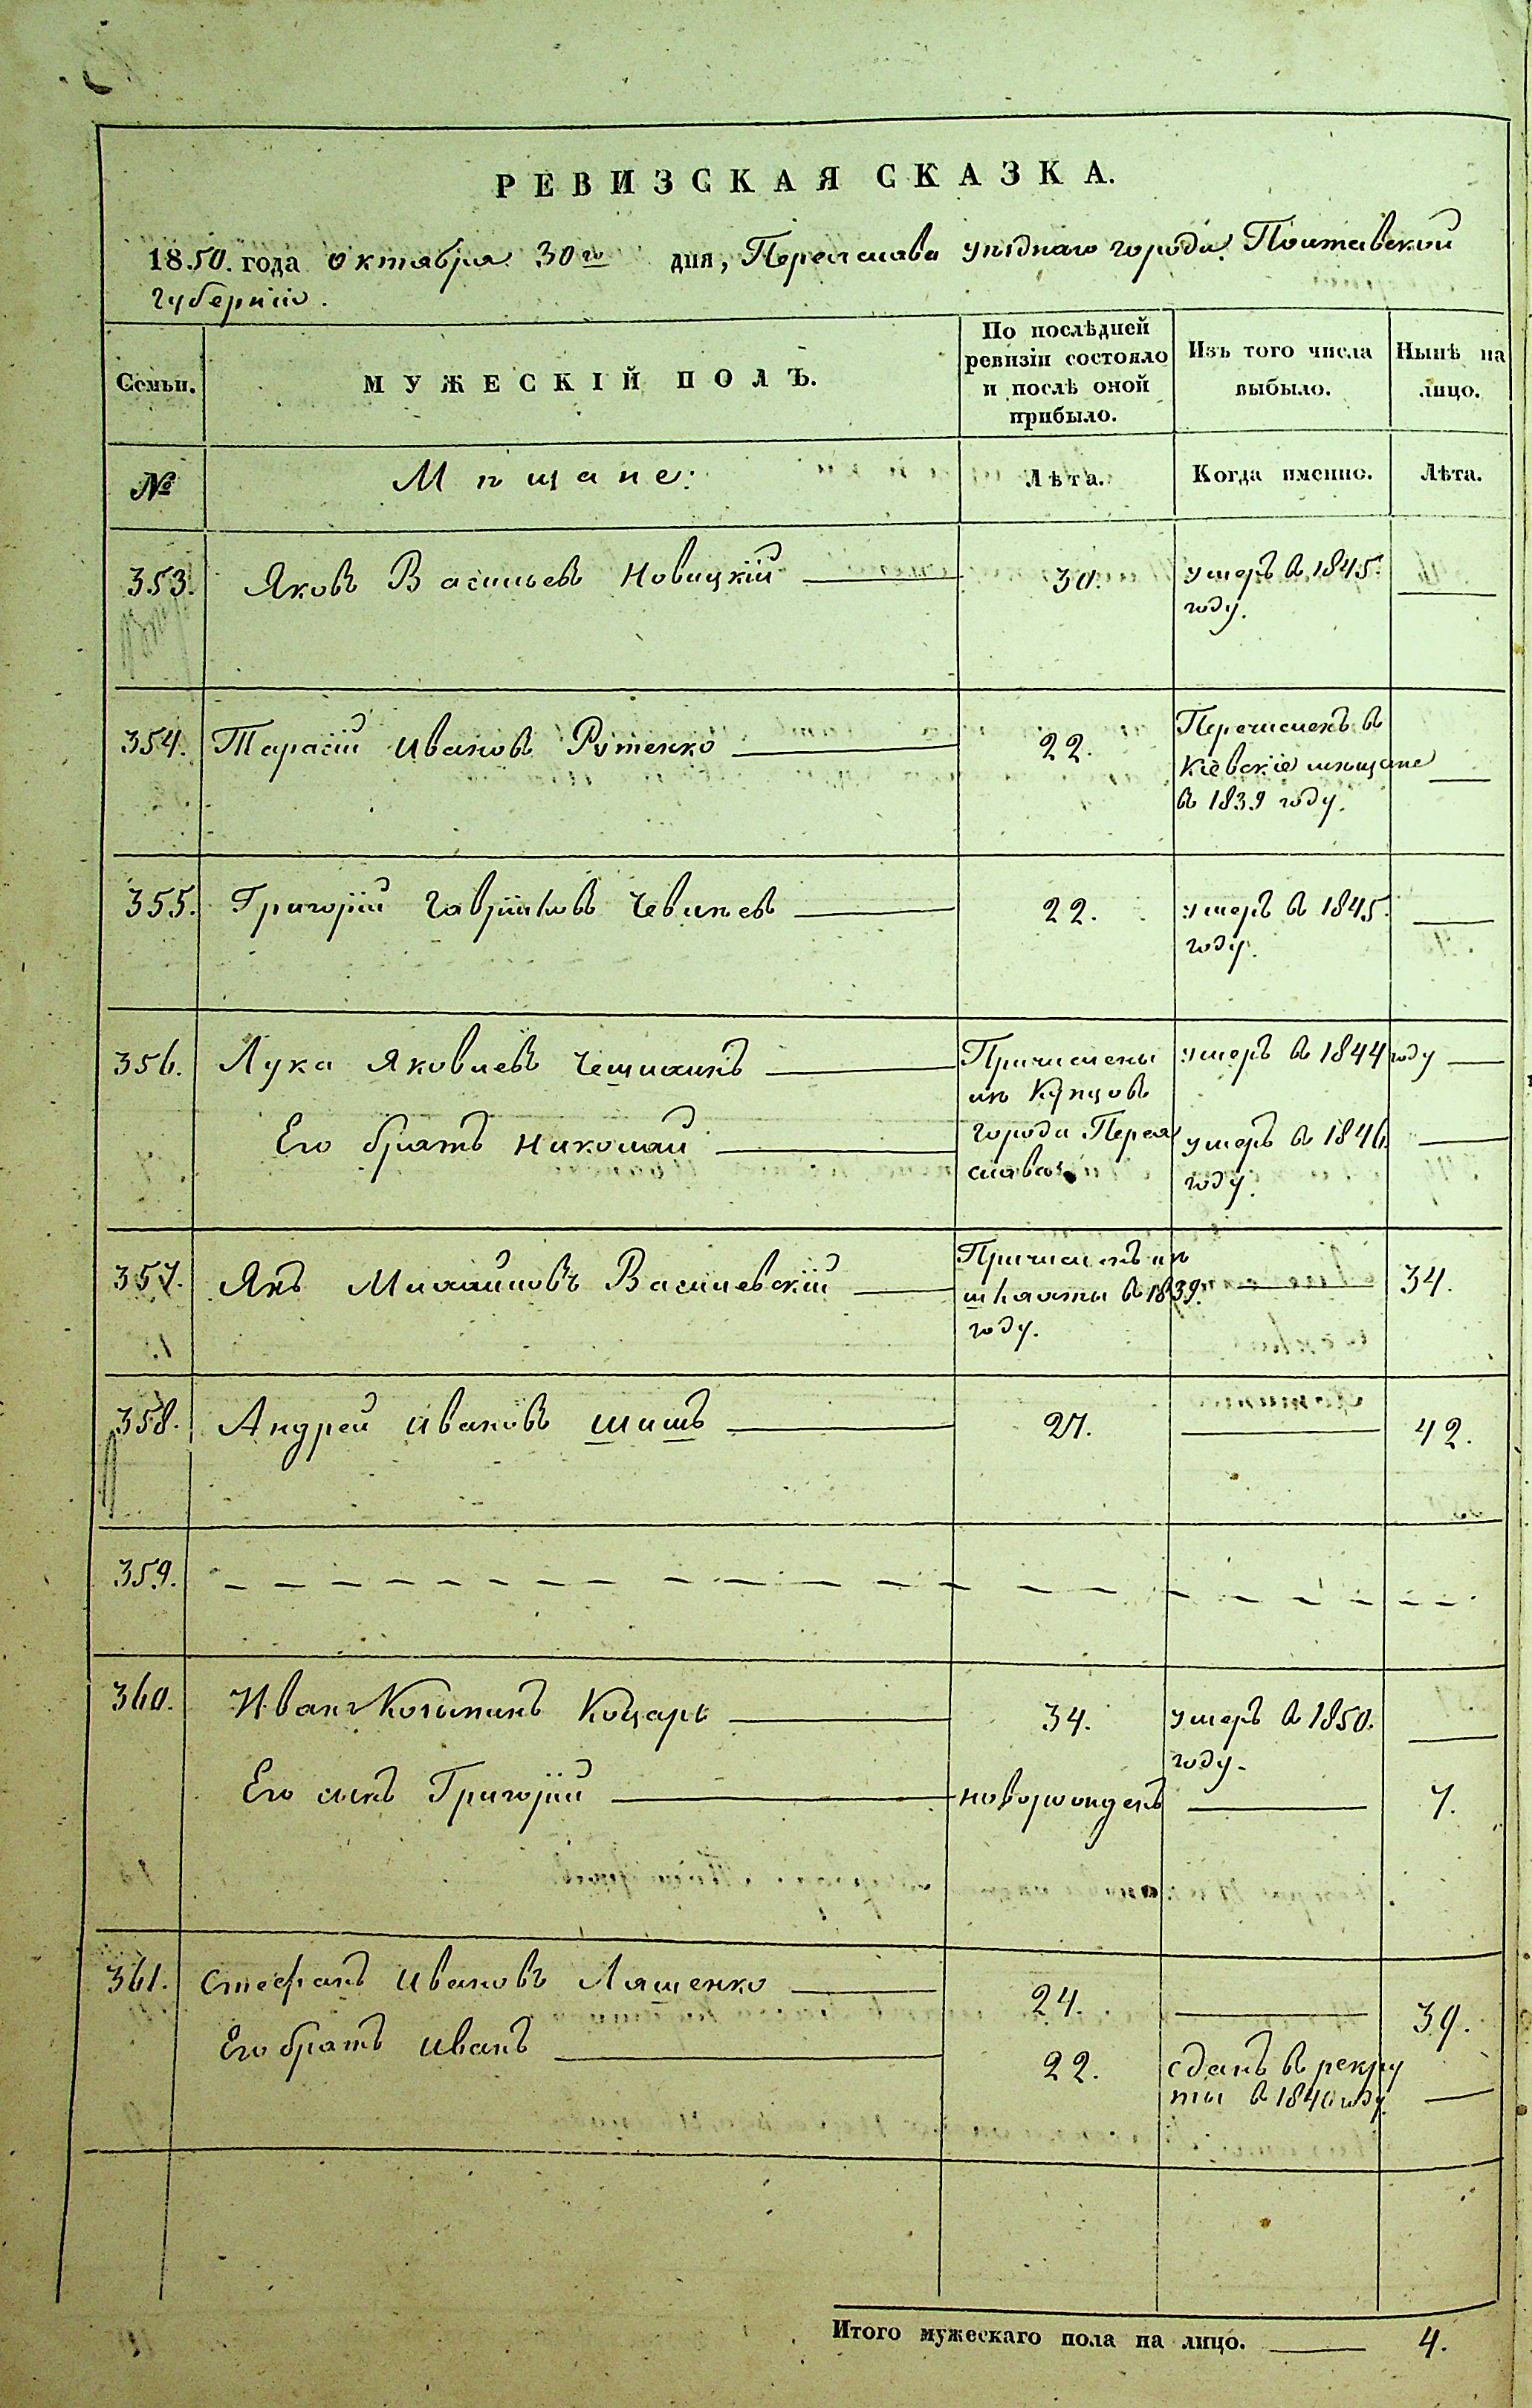 РЕВИЗСКАЯ СКАЗКА.
1850. года октября 30го дня, Переяслава уѣзднаго города Полтавской
губерніи.
Семьи.
МУЖЕСКІЙ ПОЛЪ.
По послѣдней
ревизіи состояло
и послѣ оной
прибыло.
Изъ того числа
выбыло.
Нынѣ на
лицо.
№
Мѣщане:
Лѣта.
Когда именно.
Лѣта.
353. Яковъ Васильевъ Новицкій 30. умеръ в 1845.
году.
354. Тарасій Ивановъ Рутенко 22. Перечисленъ в
Кіевскіе мѣщане
в 1839 году.
355. Григорій Гавріиловъ 22. умеръ в 1845
году.
356. Лука Яковлевъ Причислены умеръ в 1844 году
изъ Купцовъ
Его братъ Николай города Перея умеръ в 1846
слава. году.
357. Янъ Михайловъ Василевскій Причисленъ изъ
шляхты в 1839. 34.
году.
358. Андрей Ивановъ Шишъ 27. 42.
359.
360. Иванъ Коцарь 34. умеръ в 1850.
году.
Его сынъ Григорій новорожденъ 7.
361. Стефанъ Ивановъ Ляшенко 24. 39.
Его братъ Иванъ 22. сданъ в рекру
ты в 1840 году
Итого мужескаго пола на лицо. 4.